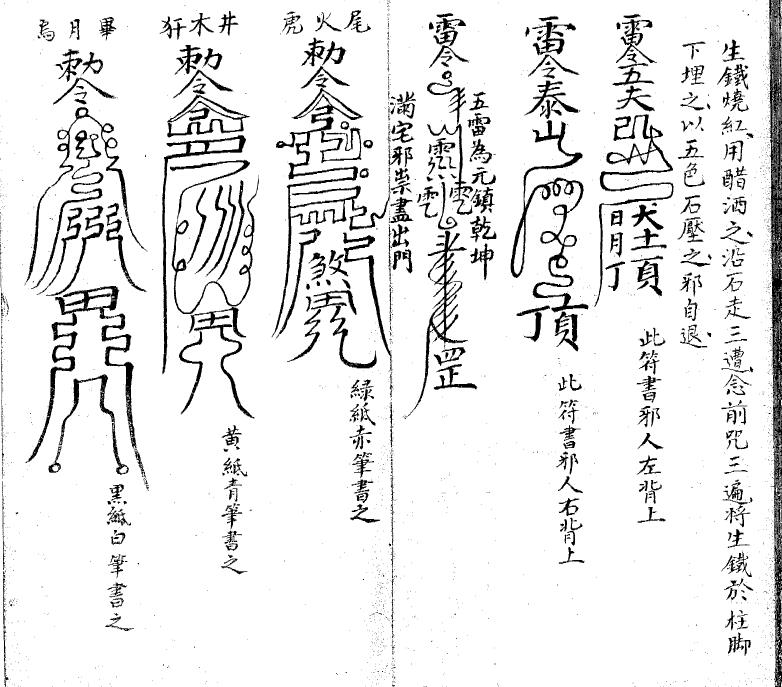 生鐵燒紅用醋洒之沿石走三遭念前咒三遍將生鐵於柱脚
下埋之以五色石壓之邪自退
雷令五夫
犬土頁
日月丁
此符書邪人左背上
雷令泰山
頂
此符書邪人右背上
雷令
五雷為元鎮乾坤
滿宅邪祟盡出門
罡
尾火虎
勅令
煞
綠紙赤筆書之
井木犴
勅令
黃紙青筆書之
畢月烏
勅令
黑紙白筆書之